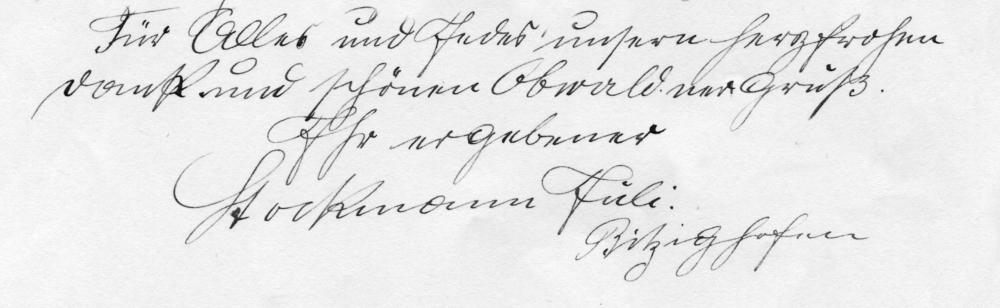 Für Alles und Jedes unsern herzfrohen
dank und schönen Obwaldner Gruß.
Ihr ergebener
Stockmann Juli.
Bitzighofen